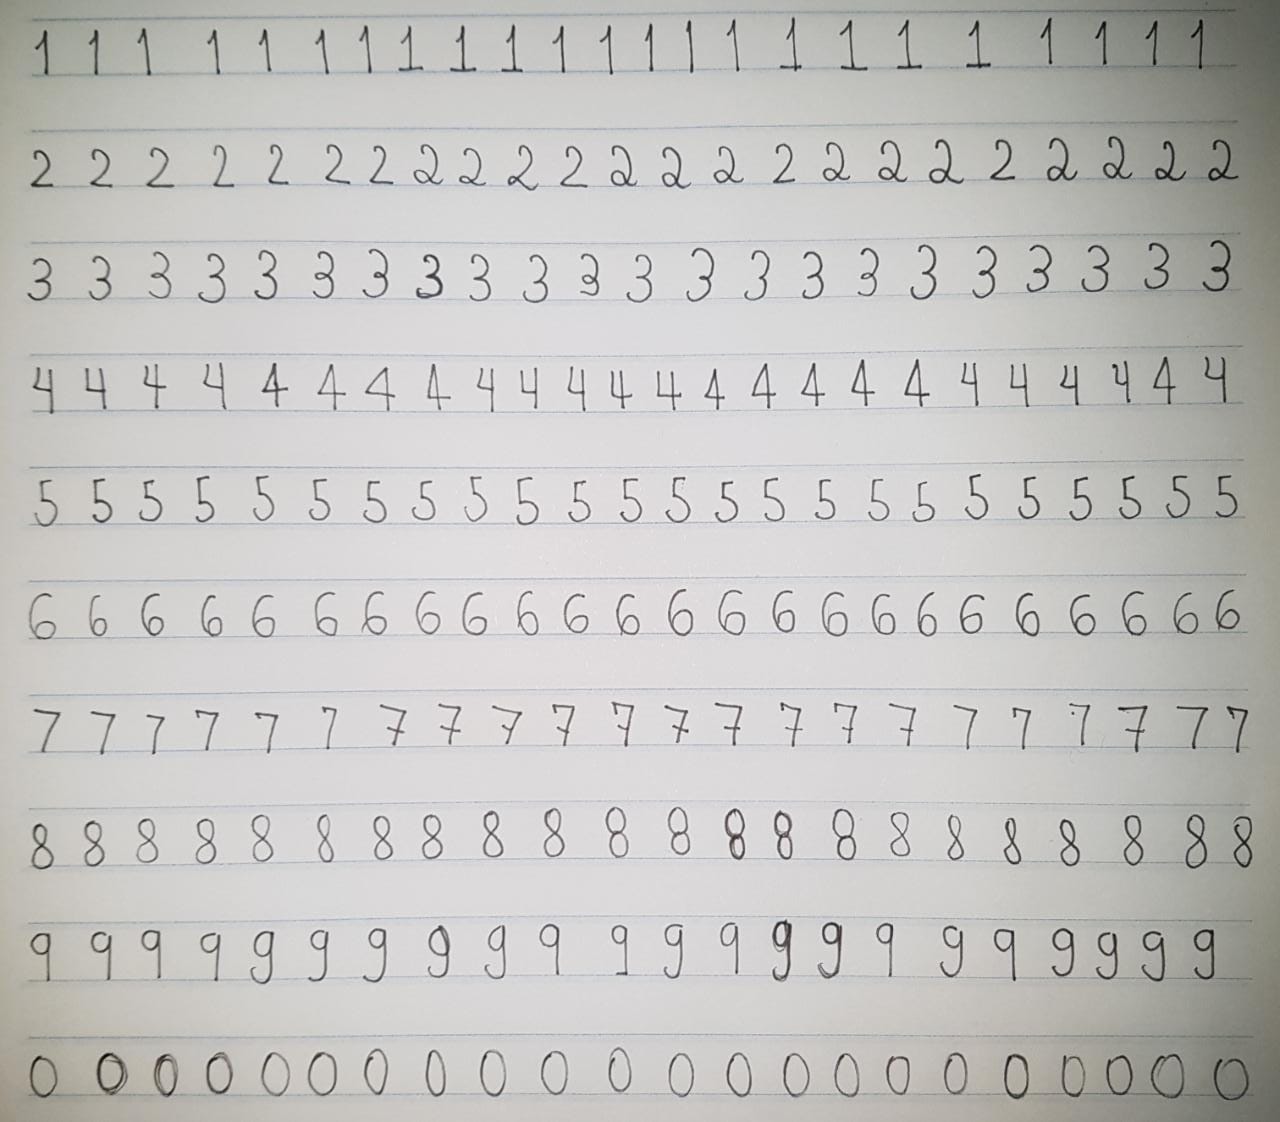 1 1 1 1 1 1 1 1 1 1 1 1 1 1 1 1 1 1 1 1 1 1 1
2 2 2 2 2 2 2 2 2 2 2 2 2 2 2 2 2 2 2 2 2 2 2
3 3 3 3 3 3 3 3 3 3 3 3 3 3 3 3 3 3 3 3 3 3
4 4 4 4 4 4 4 4 4 4 4 4 4 4 4 4 4 4 4 4 4 4 4 4
5 5 5 5 5 5 5 5 5 5 5 5 5 5 5 5 5 5 5 5 5 5 5 5
6 6 6 6 6 6 6 6 6 6 6 6 6 6 6 6 6 6 6 6 6 6 6 6
7 7 7 7 7 7 7 7 7 7 7 7 7 7 7 7 7 7 7 7 7 7
8 8 8 8 8 8 8 8 8 8 8 8 8 8 8 8 8 8 8 8 8 8
9 9 9 9 9 9 9 9 9 9 9 9 9 9 9 9 9 9 9 9 9 9
0 0 0 0 0 0 0 0 0 0 0 0 0 0 0 0 0 0 0 0 0 0